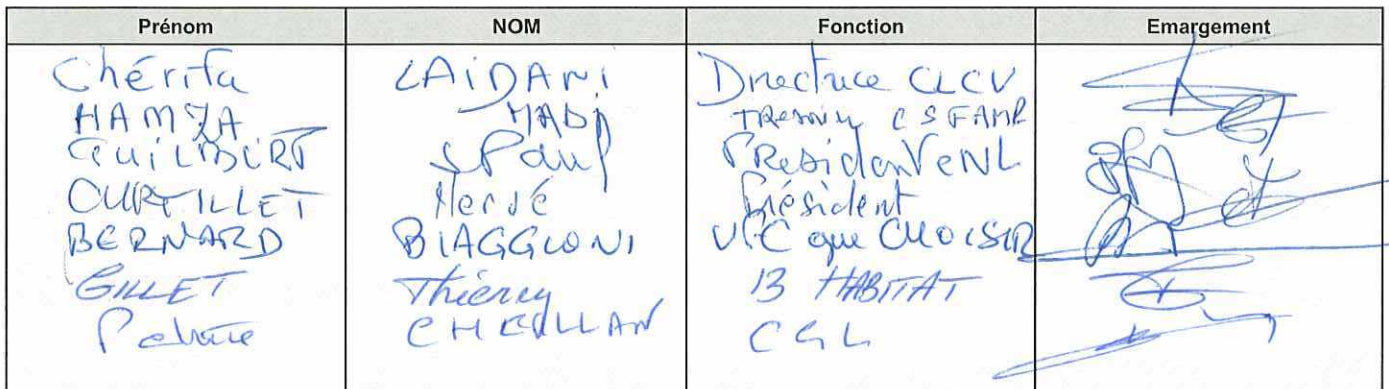 Prénom NOM Fonction Emargement
Chérifa LAIDANI Directrice CLCV
HAMZA MADI CSFAMR
GUILIBERT Paul President CNL
OURTILLET Hervé Président
BERNARD BIAGGIONI UFC que CHOISIR
GILLET Thierry 13 HABITAT
CHEILLAN CGL